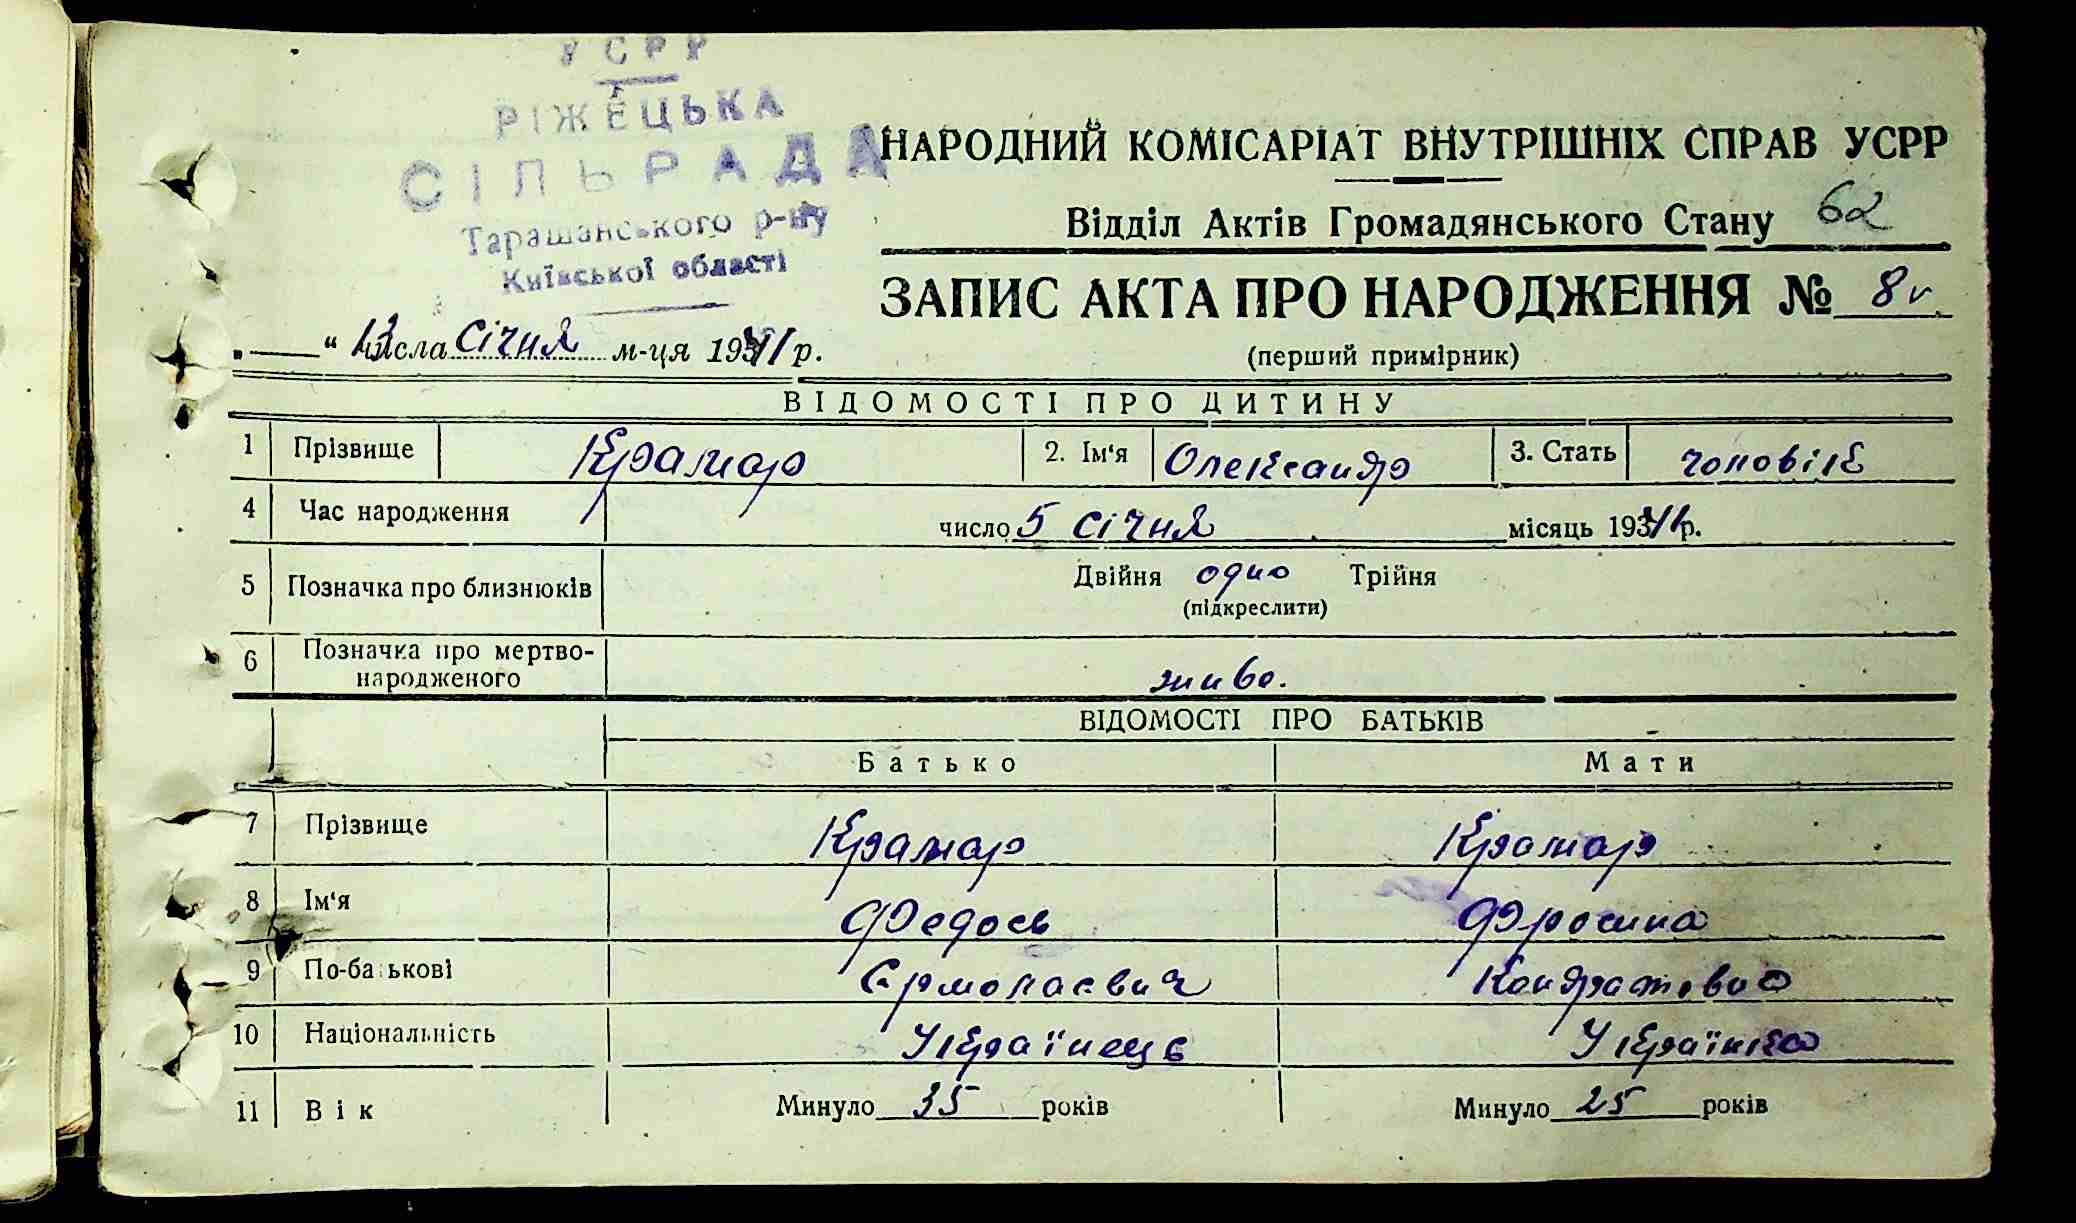 УСРР
РІЖЕЦЬКА
СІЛЬРАДА
Таращанського р-ну
Київської області
НАРОДНИЙ КОМІСАРІАТ ВНУТРІШНІХ СПРАВ УСРР
Відділ Актів Громадянського Стану 62
ЗАПИС АКТА ПРО НАРОДЖЕННЯ № 8
„ “ числа січня м-ця 1941 р.
(перший примірник)
ВІДОМОСТІ ПРО ДИТИНУ
1 Прізвище Крамар 2. Ім‘я Олександр 3. Стать чоловік
4 Час народження число 5 січня місяць 1941 р.
5 Позначка про близнюків Двійня одно Трійня
(підкреслити)
6 Позначка про мертво-
народженого живо.
ВІДОМОСТІ ПРО БАТЬКІВ
Батько Мати
7 Прізвище Крамар Крамар
8 Ім‘я Федось Фросина
9 По-батькові Єрмолаєвич Кондратовна
10 Національність Українець Українка
11 Вік Минуло 35 років Минуло 25 років